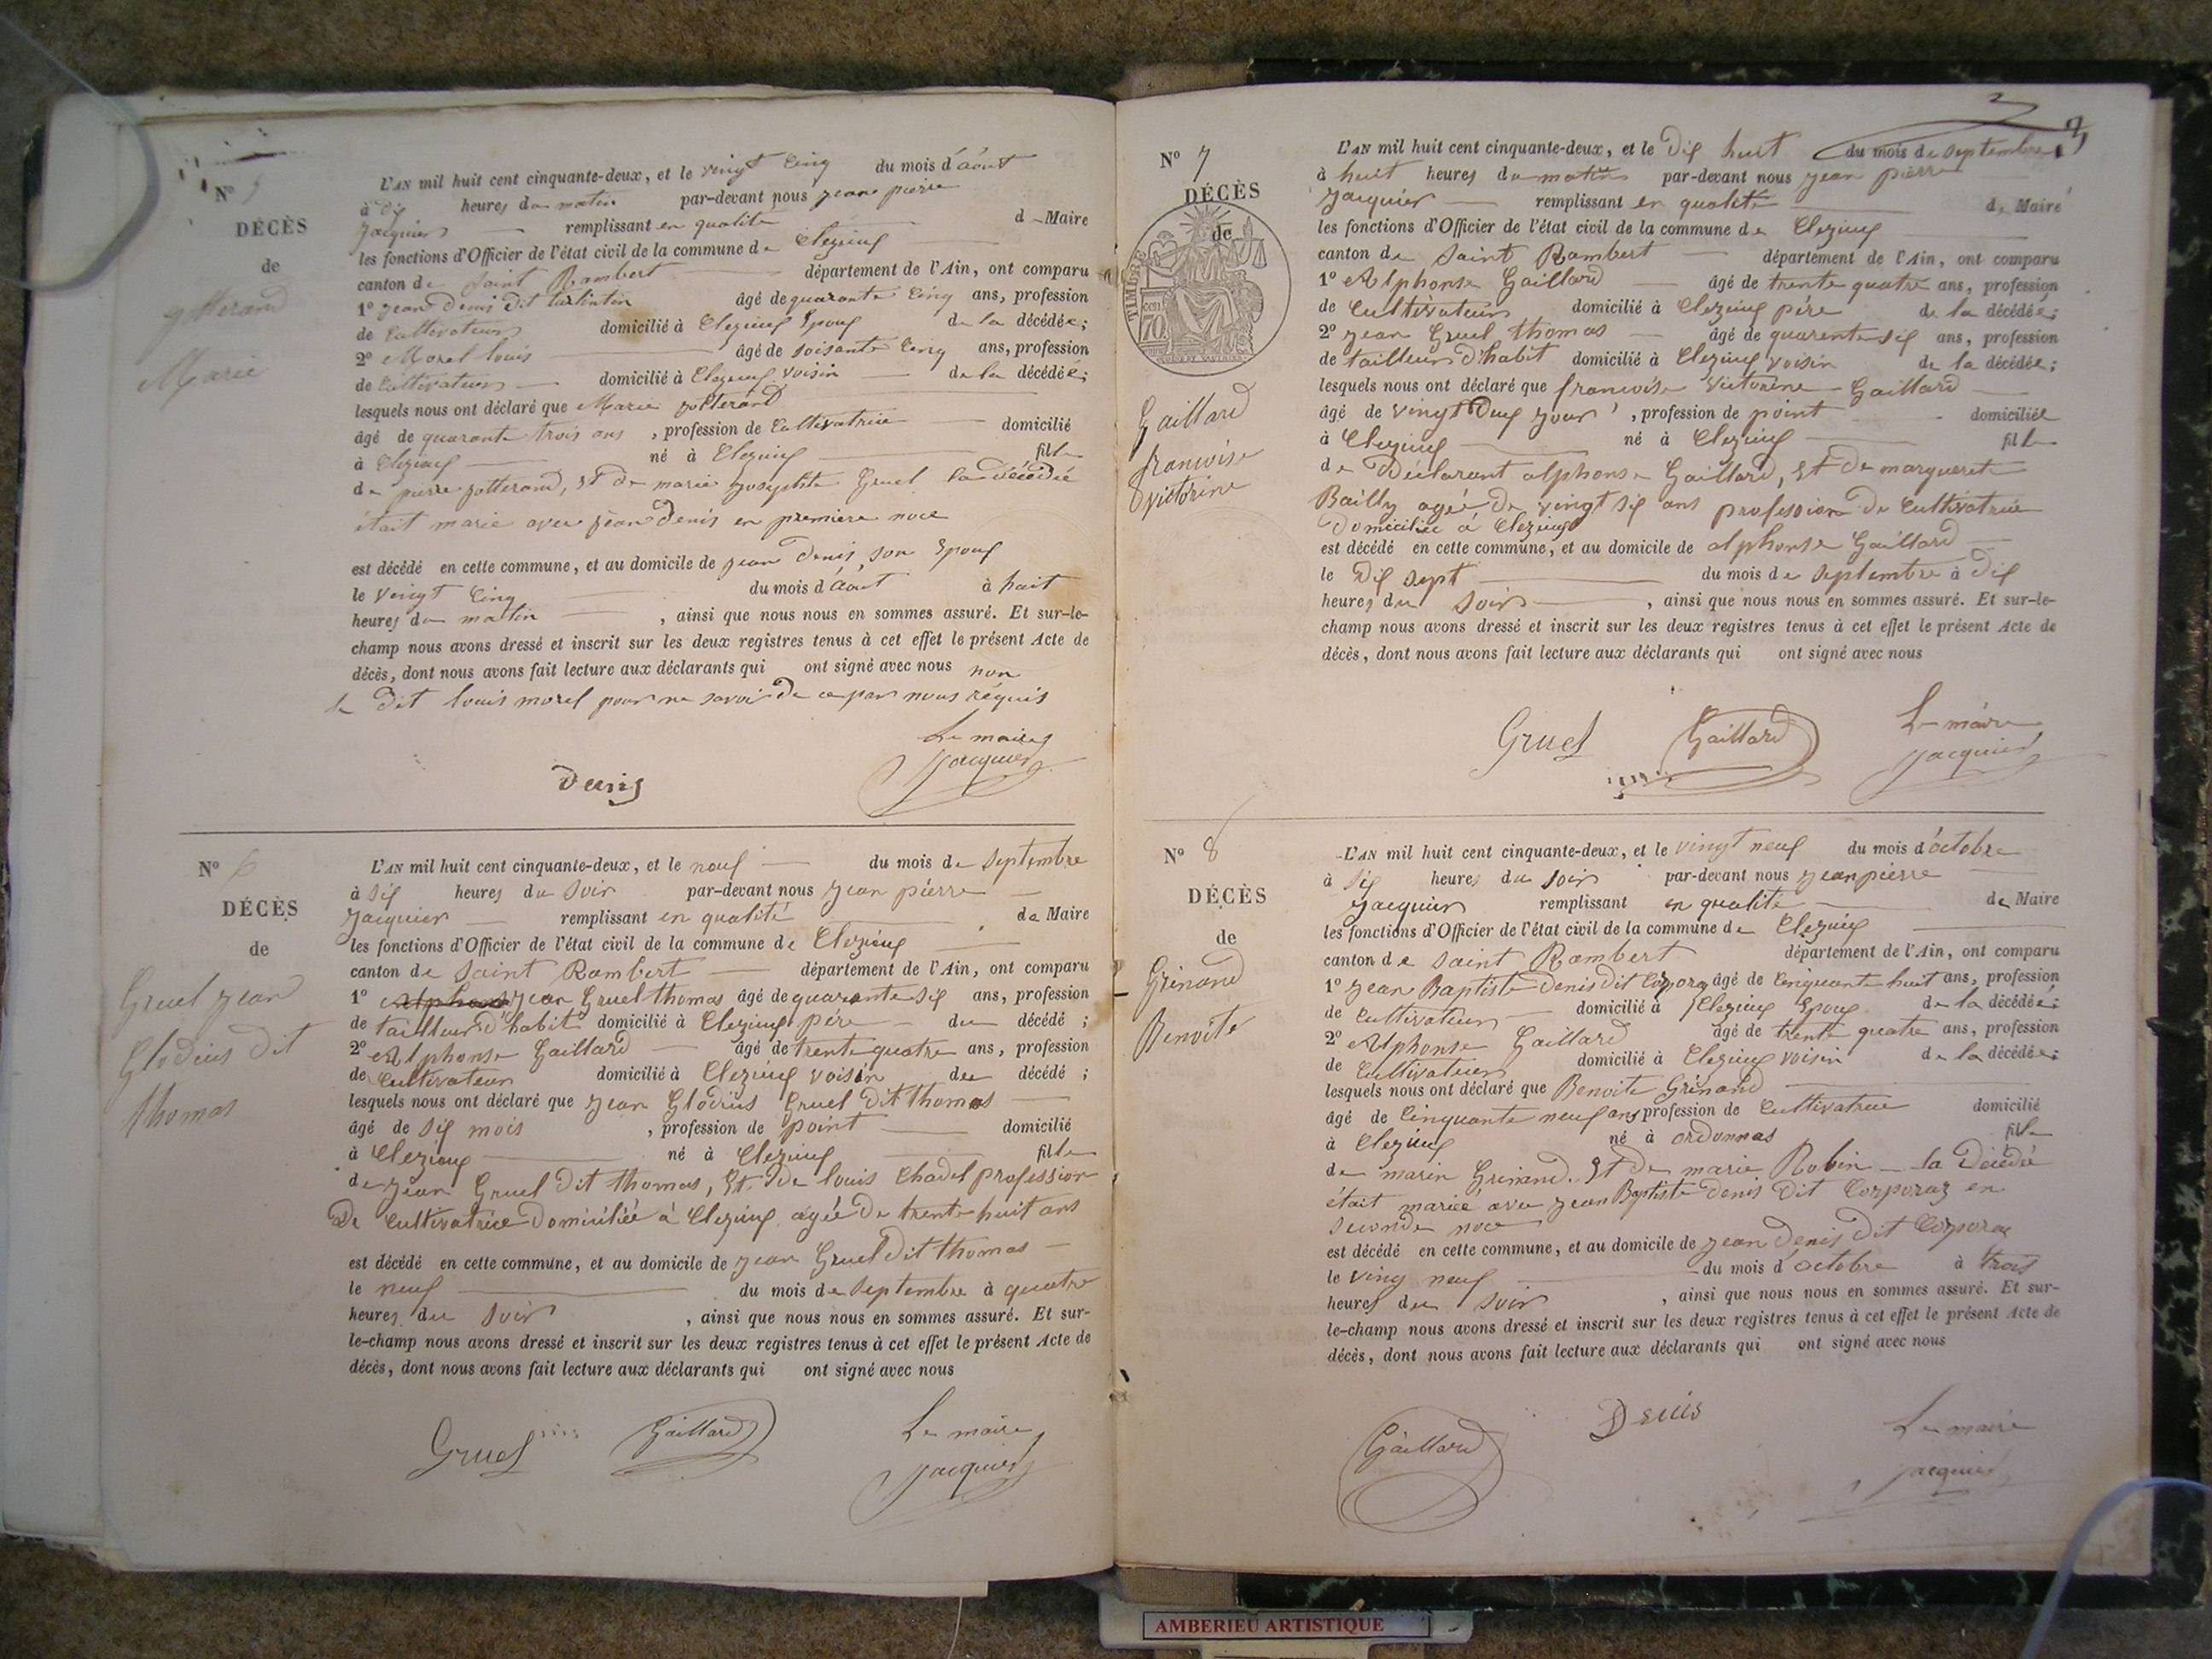 Nº 5
DÉCÈS
de
Marie
L'AN mil huit cent cinquante-deux, et le vingt cinq du mois d'août
à dix heures du matin par-devant nous jean pierre
jacquier remplissant en qualité de Maire
les fonctions d'Officier de l'état civil de la commune de Clezieux
canton de Saint Rambert département de l'Ain, ont comparu
1º jean Denis dit âgé de quarante Cinq ans, profession
de Cultivateur domicilié à Clezieux Epoux de la décédée;
2º Morel louis âgé de soisante Cinq ans, profession
de Cultivateur domicilié à Clezieux voisin de la décédée;
lesquels nous ont déclaré que Marie jotterand
âgé de quarante trois ans, profession de Cultivatrice domicilié
à Clezieux né à Clezieux fille
de pierre jotterand, Et de marie josephte Gruel la décédée
était marié avec jean Denis en premiere noce
est décédé en cette commune, et au domicile de jean Denis, son Epoux
le vingt Cinq du mois d'août à huit
heures du matin, ainsi que nous nous en sommes assuré. Et sur-le-
champ nous avons dressé et inscrit sur les deux registres tenus à cet effet le présent Acte de
décès, dont nous avons fait lecture aux déclarants qui ont signé avec nous non
le Dit louis morel pour ne savoir de ce par nous réquis
Le maire
Denis jacquier
Nº 6
DÉCÈS
de
Gruel jean
Glodius dit
thomas
L'AN mil huit cent cinquante-deux, et le neuf du mois de septembre
à six heures du soir par-devant nous jean pierre
jacquier remplissant en qualité de Maire
les fonctions d'Officier de l'état civil de la commune de Clezieux
canton de Saint Rambert département de l'Ain, ont comparu
1º Alphons jean Gruel thomas âgé de quarante six ans, profession
de tailleur d'habit domicilié à Clezieux père du décédé;
2º Alphonse Gaillard âgé de trente quatre ans, profession
de Cultivateur domicilié à Clezieux voisin du décédé;
lesquels nous ont déclaré que jean Glodius Gruel dit thomas
âgé de six mois, profession de point domicilié
à Clezieux né à Clezieux fille
de jean Gruel dit thomas, Et de louis Chadel profession
De Cultivatrice Domiciliée à Clezieux, agée De trente huit ans
est décédé en cette commune, et au domicile de jean Gruel dit thomas
le neuf du mois de septembre à quatre
heures du soir, ainsi que nous nous en sommes assuré. Et sur-
le-champ nous avons dressé et inscrit sur les deux registres tenus à cet effet le présent Acte de
décès, dont nous avons fait lecture aux déclarants qui ont signé avec nous
Gruel Gaillard Le maire
jacquier
Nº 7
DÉCÈS
de
TIMBRE
70
Gaillard
francoise
victorine
L'AN mil huit cent cinquante-deux, et le dix huit du mois de septembre
à huit heures du matin par-devant nous jean pierre
jacquier remplissant en qualité de Maire
les fonctions d'Officier de l'état civil de la commune de Clezieux
canton de Saint Rambert département de l'Ain, ont comparu
1º Alphonse Gaillard âgé de trente quatre ans, profession
de Cultivateur domicilié à Clezieux père de la décédée;
2º jean Gruel thomas âgé de quarente six ans, profession
de tailleur d'habit domicilié à Clezieux voisin de la décédée;
lesquels nous ont déclaré que francoise Victorine Gaillard
âgé de vingt Deux jour, profession de point domiciliée
à Clezieux né à Clezieux fille
de Déclarant alphonse Gaillard, Et De marguerite
Bailly agée de vingt six ans profession De Cultivatrice
Domiciliée à Clezieux
est décédé en cette commune, et au domicile de alphonse Gaillard
le Dix sept du mois de septembre à dix
heures du soir, ainsi que nous nous en sommes assuré. Et sur-le-
champ nous avons dressé et inscrit sur les deux registres tenus à cet effet le présent Acte de
décès, dont nous avons fait lecture aux déclarants qui ont signé avec nous
Gruel Gaillard Le maire
jacquier
Nº 8
DÉCÈS
de
Grinand
Benoite
L'AN mil huit cent cinquante-deux, et le vingt neuf du mois d'octobre
à six heures du soir par-devant nous jean pierre
jacquier remplissant en qualité de Maire
les fonctions d'Officier de l'état civil de la commune de Clezieux
canton de Saint Rambert département de l'Ain, ont comparu
1º jean Baptiste Denis dit âgé de Cinquante huit ans, profession
de Cultivateur domicilié à Clezieux Epoux de la décédée;
2º Alphonse Gaillard âgé de trente quatre ans, profession
de Cultivateur domicilié à Clezieux voisin de la décédée;
lesquels nous ont déclaré que Benoite Grinand
âgé de Cinquante neuf ans profession de Cultivatrice domicilié
à Clezieux né à ordonnas fille
de marin Grinand. Et De marie Robin la Décédée
était mariée avec jean Baptiste Denis dit Corporaz en
seconde noce
est décédé en cette commune, et au domicile de jean Denis dit Corporaz
le ving neuf du mois d'octobre à trois
heures du soir, ainsi que nous nous en sommes assuré. Et sur-
le-champ nous avons dressé et inscrit sur les deux registres tenus à cet effet le présent Acte de
décès, dont nous avons fait lecture aux déclarants qui ont signé avec nous
Gaillard Denis Le maire
jacquier
AMBERIEU ARTISTIQUE